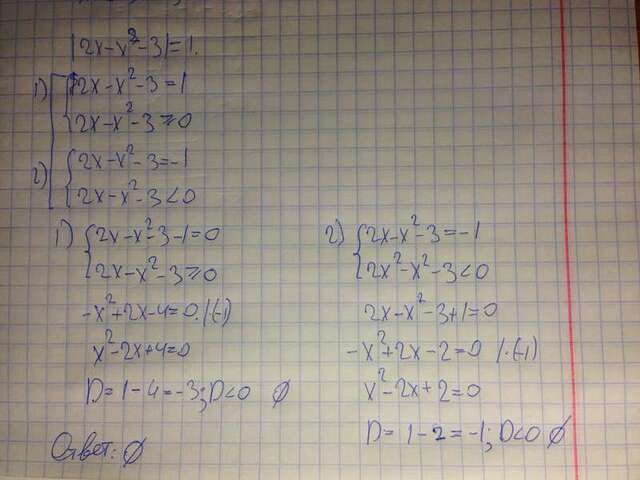 |2x-x²-3|=1.
1) [ { 2x-x²-3=1
2x-x²-3≥0
2) { 2x-x²-3=-1
2x-x²-3<0
1) { 2x-x²-3-1=0
2x-x²-3≥0
-x²+2x-4=0.|(-1)
x²-2x+4=0
D=1-4=-3; D<0 ∅
2) { 2x-x²-3=-1
2x²-x²-3<0
2x-x²-3+1=0
-x²+2x-2=0 |·(-1)
x²-2x+2=0
D=1-2=-1; D<0 ∅
Ответ: ∅